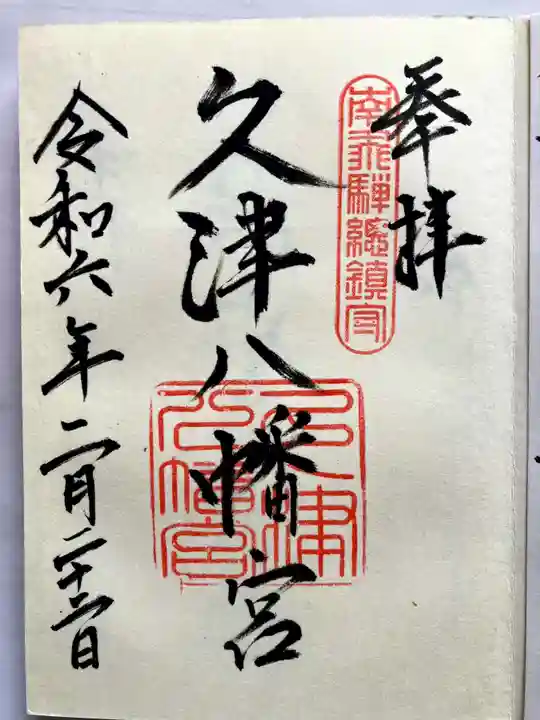 奉拝
南飛騨総鎮守
久津八幡宮
久津八幡宮
令和六年二月二十二日